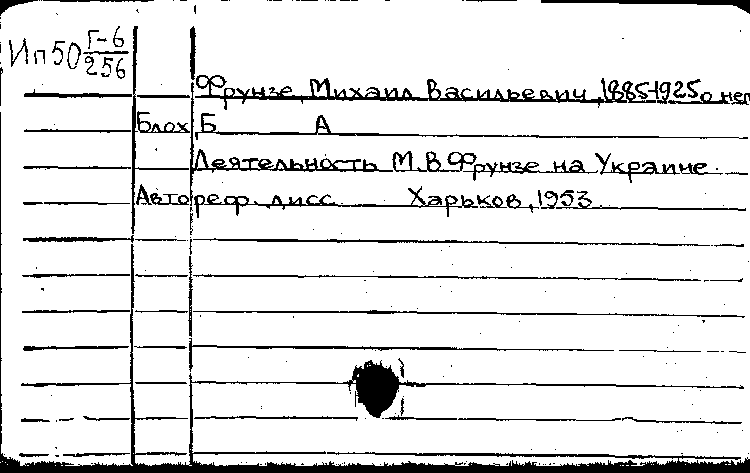 Ип50 Г-6/256
Фрунзе, Михаил Васильевич, 1885-1925, о нем
Блох, Б А
Деятельность М.В.Фрунзе на Украине.
Автореф. дисс Харьков, 1953